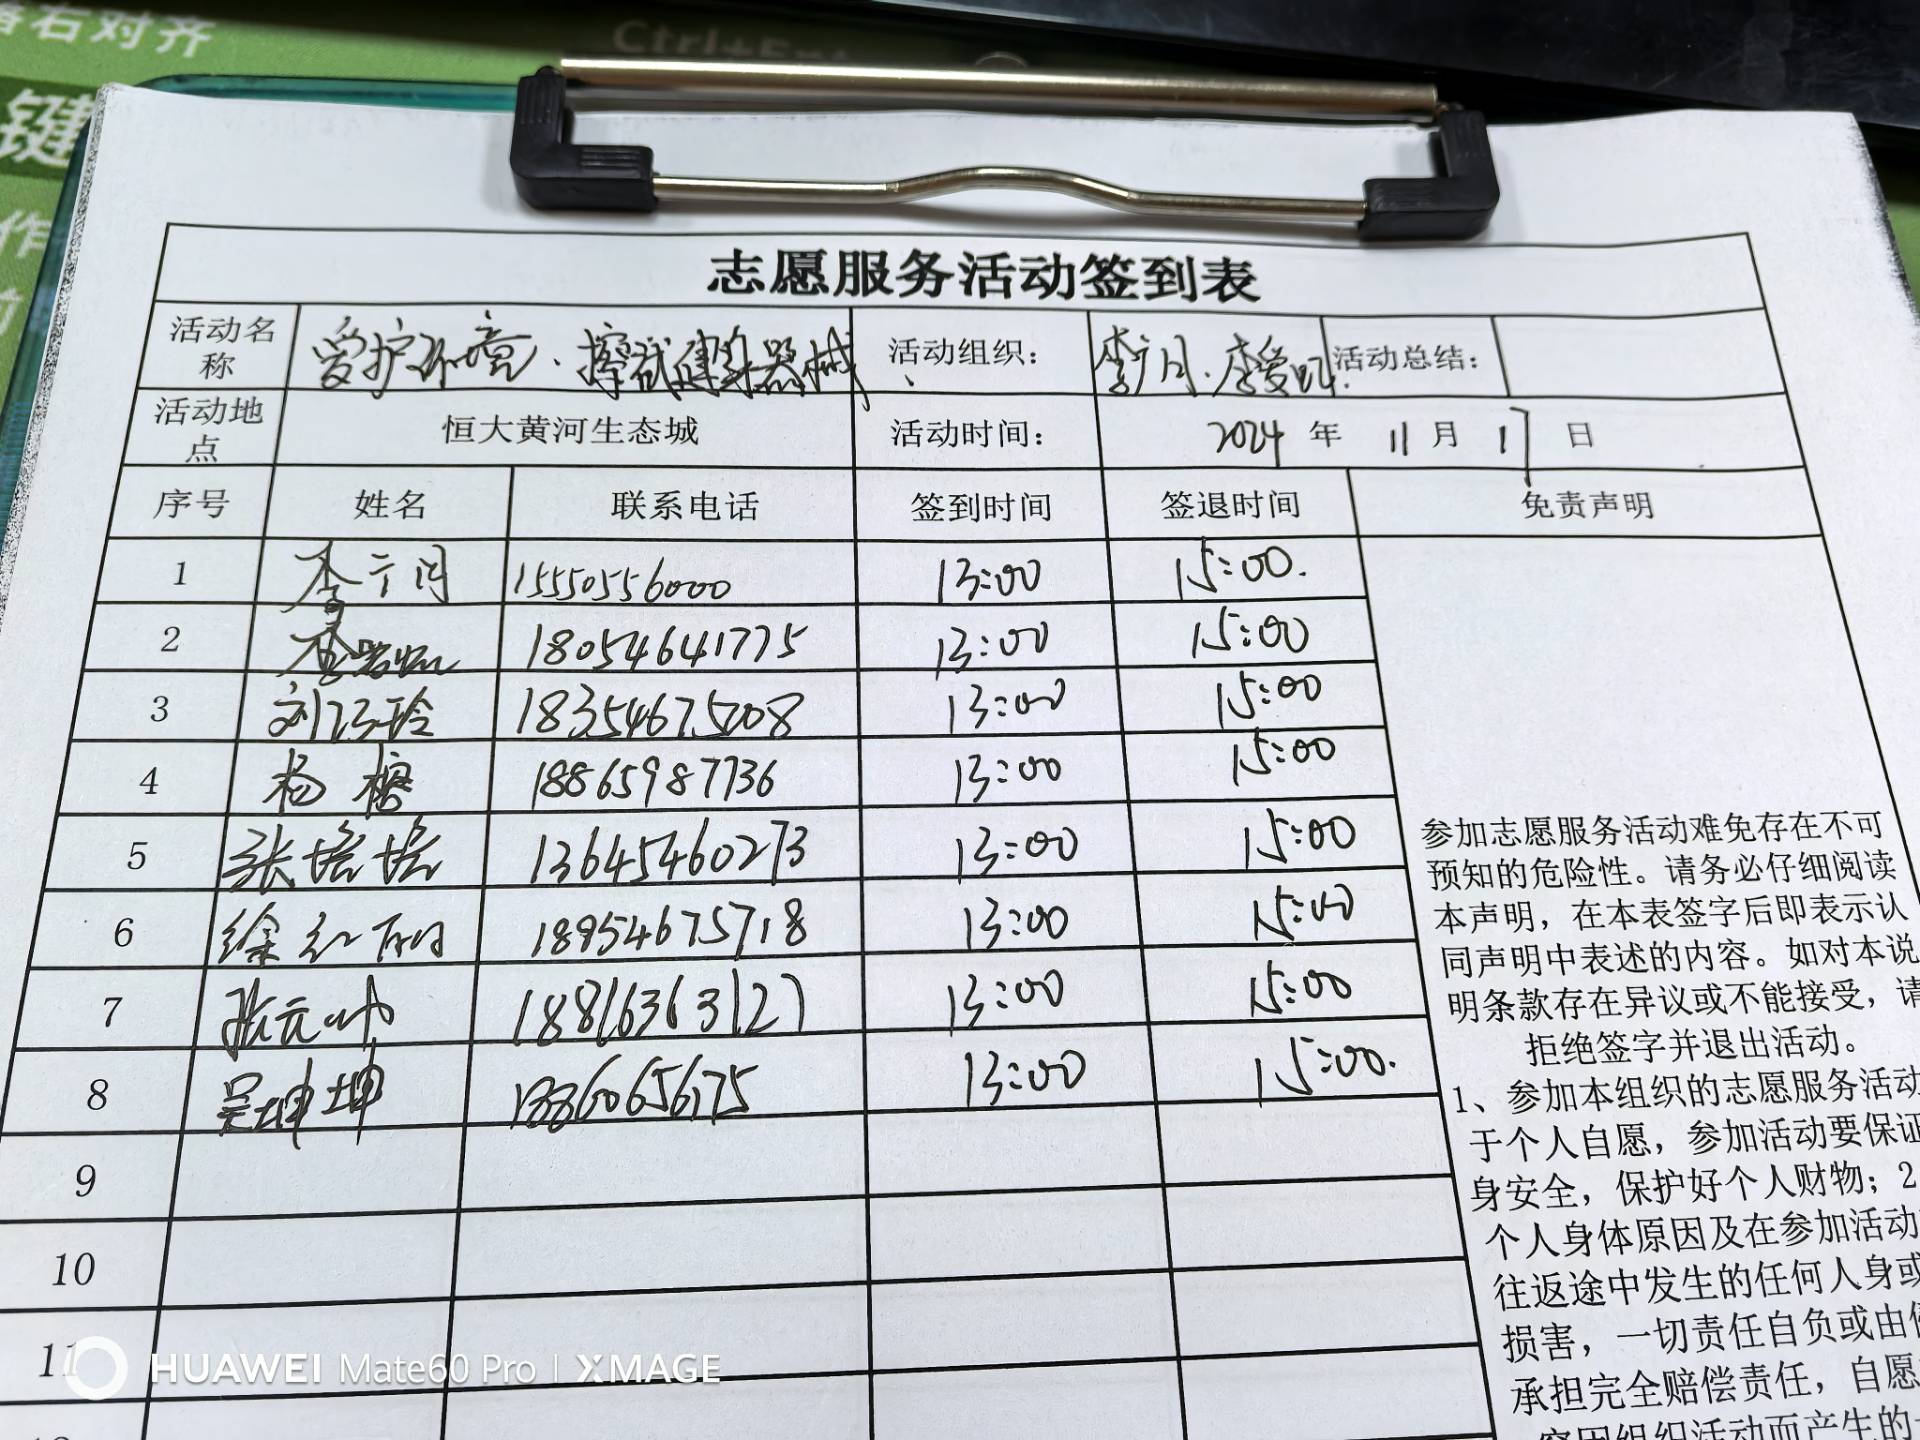 格右对齐
Ctrl+Ent
键
作
志愿服务活动签到表
活动名称 爱护环境、擦拭健身器械 活动组织： 活动总结：
活动地点 恒大黄河生态城 活动时间： 2024 年 11 月 17 日
序号 姓名 联系电话 签到时间 签退时间 免责声明
1 15550556000 13:00 15:00.
2 18054641775 13:00 15:00
3 18354675208 13:00 15:00
4 杨榕 18865987736 13:00 15:00
5 张培培 13645460273 13:00 15:00
6 18954675718 13:00 15:00
7 13:00 15:00
8 吴坤坤 13:00 15:00.
9
10
11
参加志愿服务活动难免存在不可
预知的危险性。请务必仔细阅读
本声明，在本表签字后即表示认
同声明中表述的内容。如对本说
明条款存在异议或不能接受，请
拒绝签字并退出活动。
1、参加本组织的志愿服务活动
于个人自愿，参加活动要保证
身安全，保护好个人财物；2
个人身体原因及在参加活动
往返途中发生的任何人身或
损害，一切责任自负或由
承担完全赔偿责任，自愿
因组织活动而产生的
HUAWEI Mate60 Pro | XMAGE